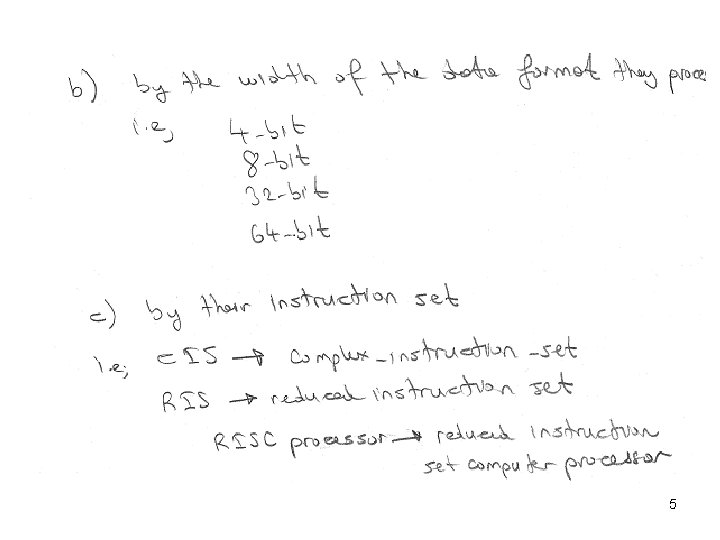 b) by the width of the data format they proce
i.e, 4-bit
8-bit
32-bit
64-bit
c) by their instruction set
i.e; CIS → Complex-instruction-set
RIS → reduced instruction set
RISC processor → reduced instruction
set computer processor
5